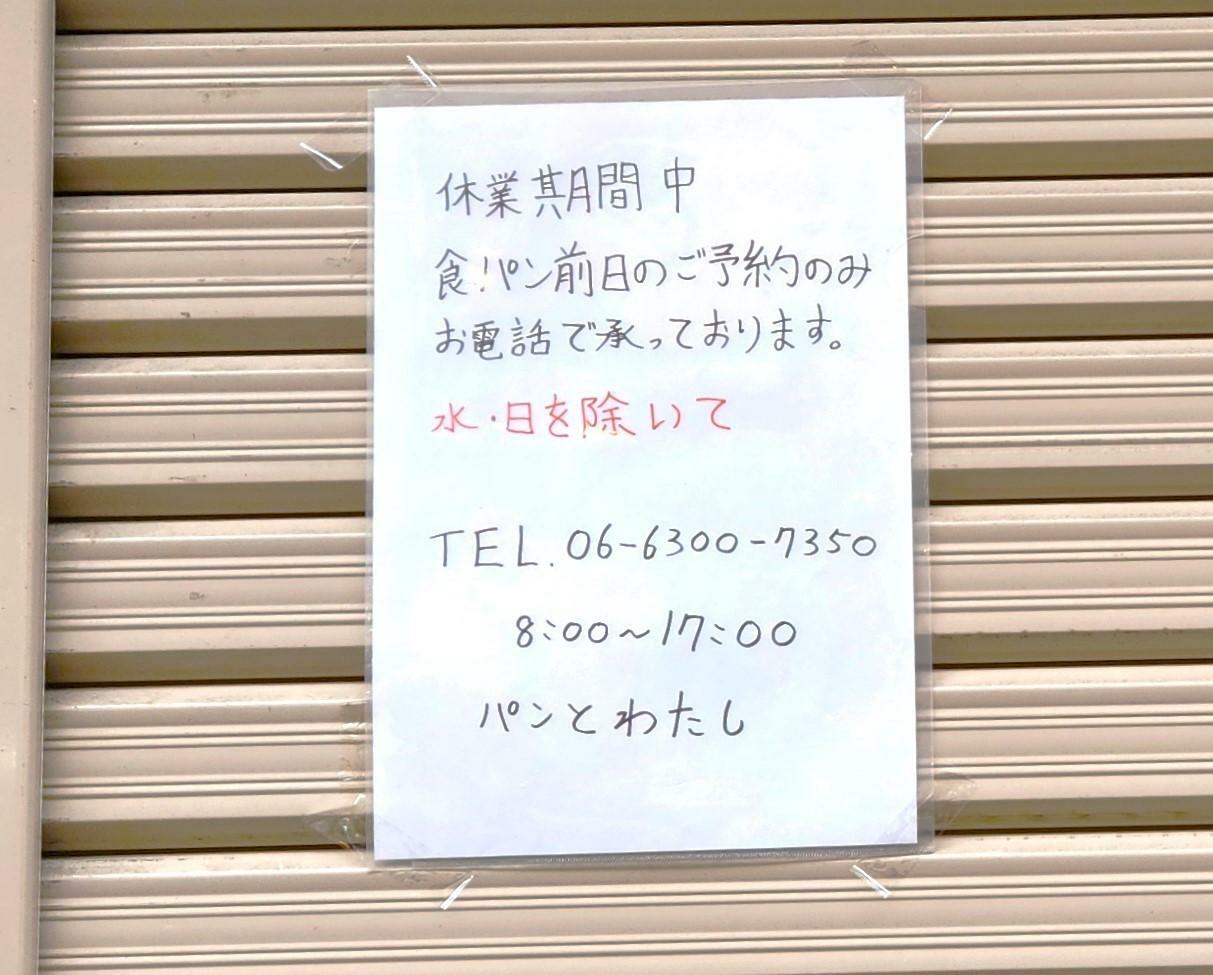 休業期間中
食パン前日のご予約のみ
お電話で承っております。
水・日を除いて
TEL.06-6300-7350
8:00~17:00
パンとわたし